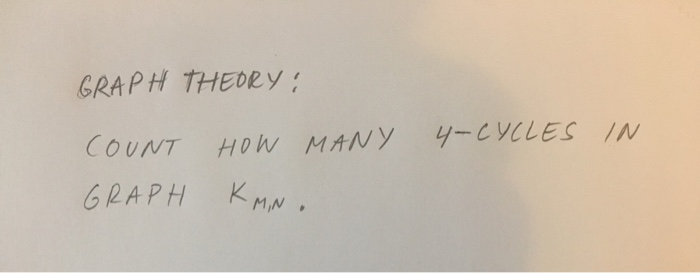 GRAPH THEORY:
COUNT HOW MANY 4-CYCLES IN
GRAPH K M,N .